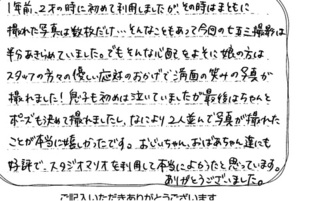 1年前、2才の時に初めて利用しましたが、その時はまともに
撮れた写真は数枚だけ…そんなこともあって今回の七五三撮影は
半分あきらめていました。でもそんな心配をよそに娘の方は
スタッフの方々の優しい応対のおかげで満面の笑みの写真が
撮れました!息子も初めは泣いていましたが最後はちゃんと
ポーズも決めて撮れましたし、なにより2人並んで写真が撮れた
ことが本当に嬉しかったです。おじいちゃん、おばあちゃん達にも
好評で、スタジオマリオを利用して本当によかったと思っています。
ありがとうございました。
ご記入いただきありがとうございます